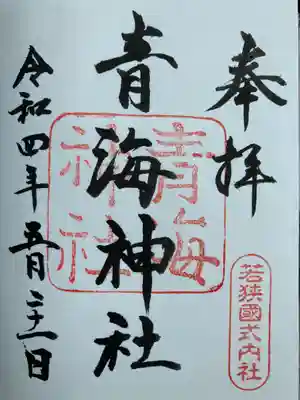 奉拝
若狭國式内社
青海神社
青海神社
令和四年五月二十一日